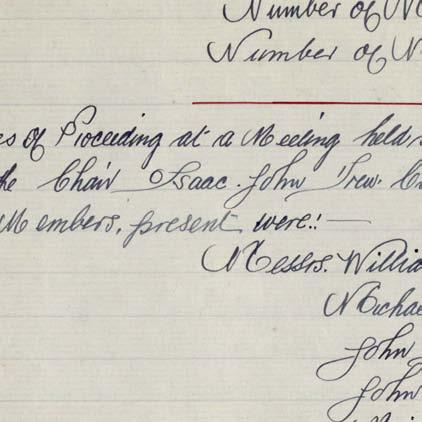 Number of N
Number of N
es of Proceeding at a Meeting held
the Chair Isaac. John Trew.
Members, present were:—
Messrs. Willia
Michae
John
John